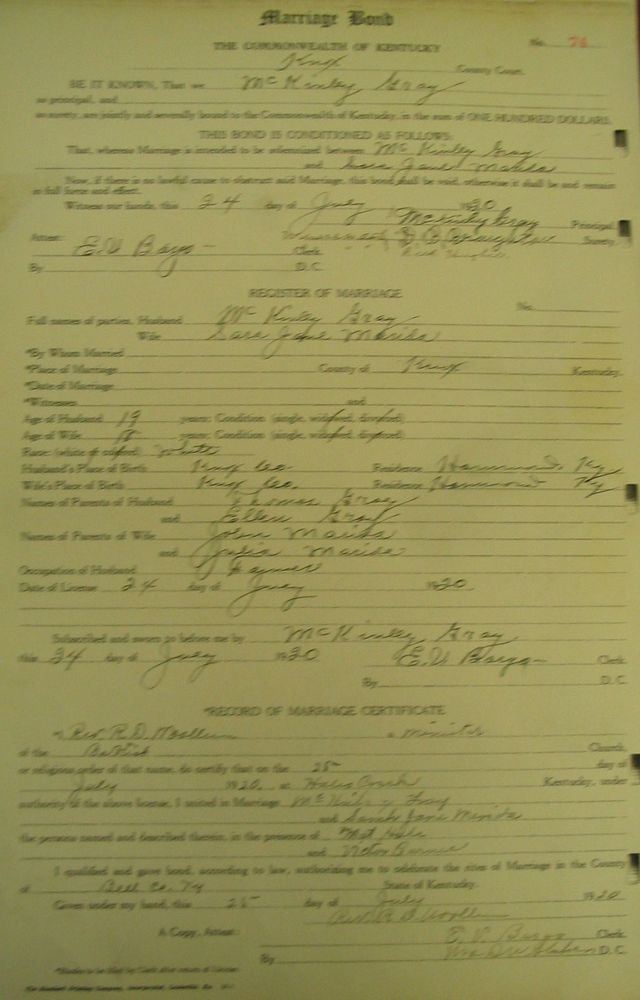 Marriage Bond
THE COMMONWEALTH OF KENTUCKY No. 76
Knox County Court.
BE IT KNOWN, That we McKinley Gray
as principal, and
as surety, are jointly and severally bound to the Commonwealth of Kentucky, in the sum of ONE HUNDRED DOLLARS.
THIS BOND IS CONDITIONED AS FOLLOWS:
That, whereas Marriage is intended to be solemnized between McKinley Gray
and Sara Jane
Now, if there is no lawful cause to obstruct said Marriage, this bond shall be void, otherwise it shall be and remain
in full force and effect.
Witness our hands, this 24 day of July 1920
McKinley Gray Principal
Attest: Surety
E.V. Clerk
By D.C.
REGISTER OF MARRIAGE
No.
Full names of parties, Husband McKinley Gray
Wife Sara Jane
*By Whom Married
*Place of Marriage County of Knox Kentucky.
*Date of Marriage
*Witnesses and
Age of Husband 19 years; Condition (single, widowed, divorced)
Age of Wife years; Condition (single, widowed, divorced)
Race (white or colored) White
Husband's Place of Birth Knox Co. Residence Hammond Ky
Wife's Place of Birth Knox Co. Residence Hammond Ky
Names of Parents of Husband Gray
and Ellen Gray
Names of Parents of Wife John
and Julia
Occupation of Husband Farmer
Date of License 24 day of July 1920
Subscribed and sworn to before me by McKinley Gray
this 24 day of July 1920 E.V. Clerk
By D.C.
*RECORD OF MARRIAGE CERTIFICATE
I, Rev. R.D. a minister
of the Baptist Church,
or religious order of that name, do certify that on the 25 day of
July 1920, at Hales Creek Kentucky, under
authority of the above license, I united in Marriage McKinley Gray
and Sarah Jane
the persons named and described therein, in the presence of Hale
and Victor
I qualified and gave bond, according to law, authorizing me to celebrate the rites of Marriage in the County
of Bell Co. Ky State of Kentucky.
Given under my hand, this 25 day of July 1920
Rev. R.D.
A Copy, Attest: E.V. Clerk
By D.C.
*Blanks to be filled by Clerk after return of License